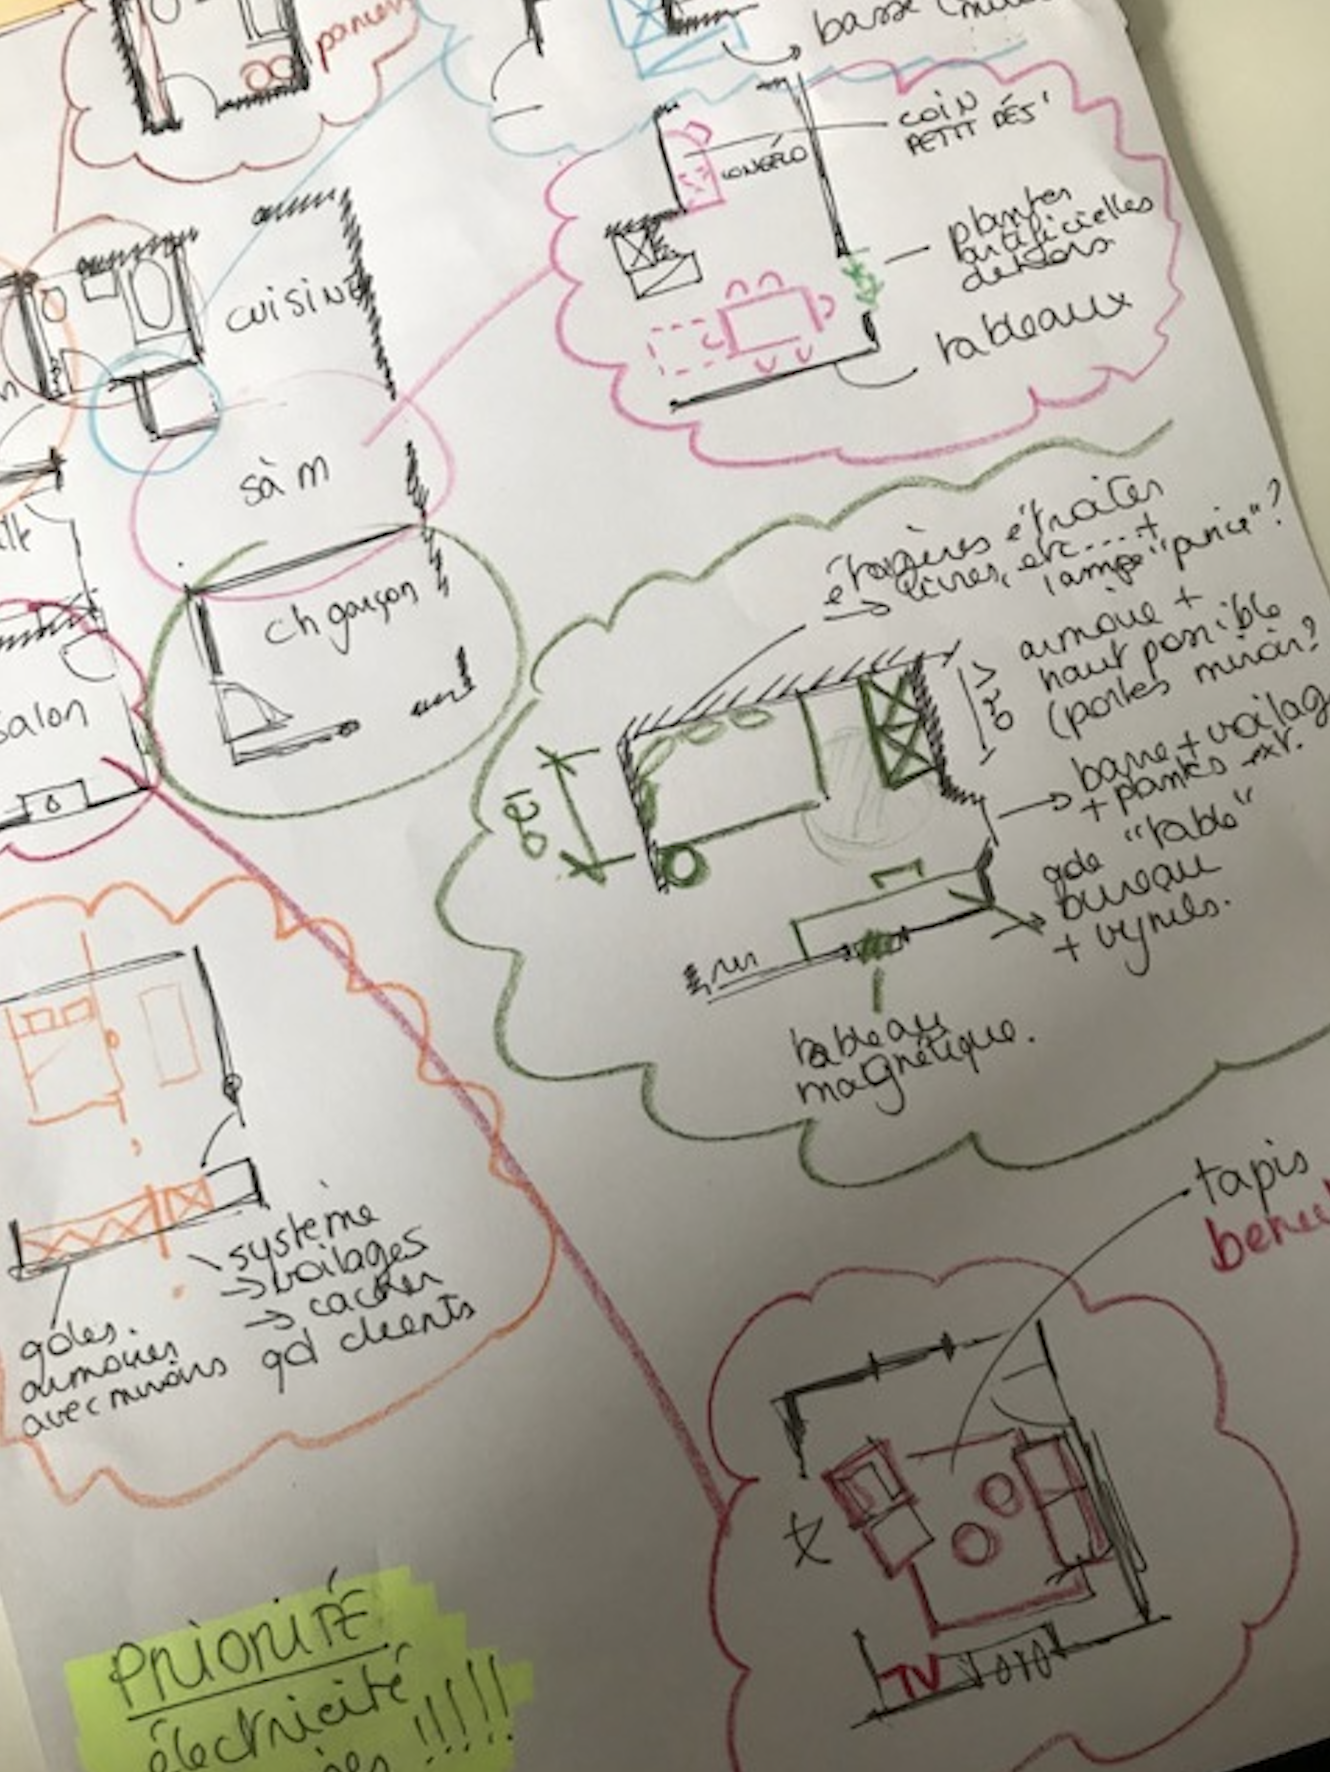 basse
COIN
PETIT DÉJ'
CONGÉLO
plantes
artificielles
dehors.
tableaux
CUISINE
sàm
ch garçon
Salon
étagères étroites
livres, etc....+
lampe "pince"?
armoire +
haut possible
(portes miroir?
120
120
barre + voilag
+ plantes ext.
gde "table"
bureau
+ vynils.
tableau
magnétique.
système
→ voilages
→ cacher
qd clients
gdes.
armoires
avec miroirs
tapis
TV
PRIORITÉ
électricité
!!!!!